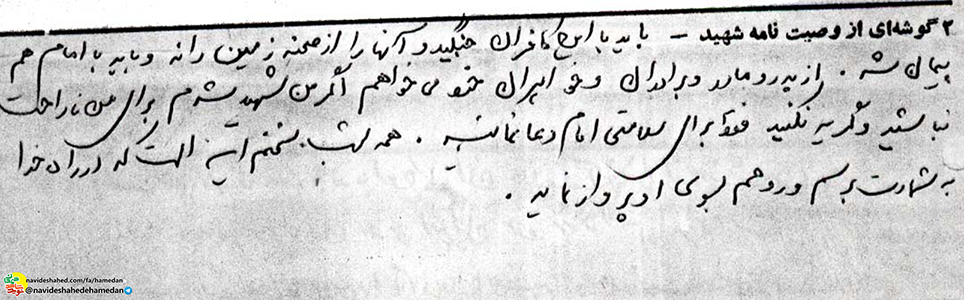 ۲ گوشه‌ای از وصیت نامه شهید – باید با این کافران جنگید و آنها را از صحنه زمین راند و باید با امام هم
پیمان شد. از پدر و مادر و برادران و خواهران خود می خواهم اگر من شهید شدم برای من ناراحت
نباشید و گریه نکنید فقط برای سلامتی امام دعا نمائید. همه این است که در راه خدا
به شهادت برسم و روحم بسوی او پرواز نماید.
navideshahed.com/fa/hamedan
@navideshahedehamedan